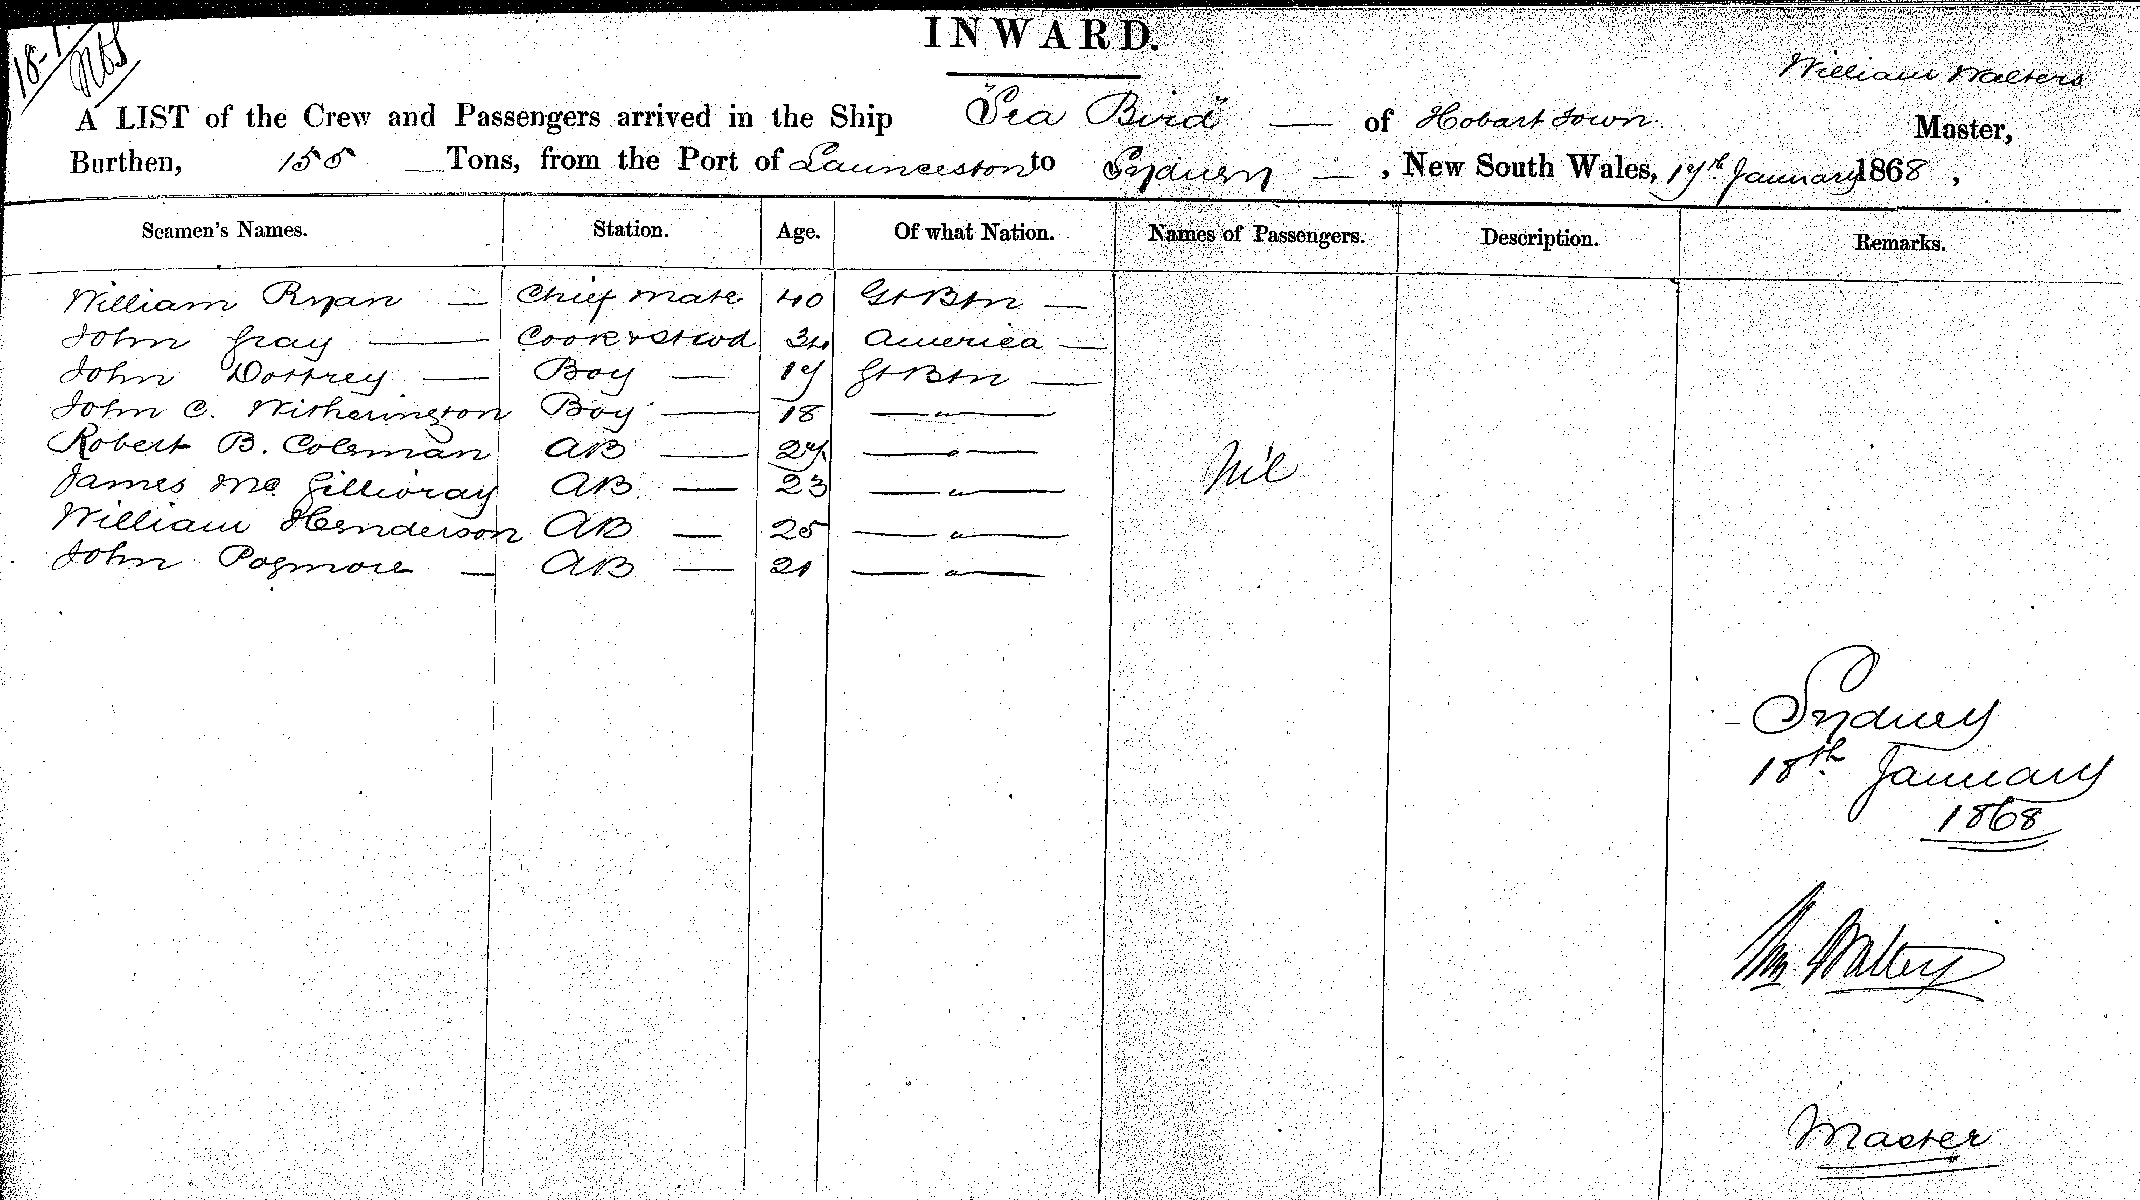 18-1
INWARD.
William Walters
A LIST of the Crew and Passengers arrived in the Ship "Sea Bird" — of Hobart Town Master,
Burthen, 155 — Tons, from the Port of Launceston to Sydney — , New South Wales, 17th January 1868,
Seamen's Names. Station. Age. Of what Nation. Names of Passengers. Description. Remarks.
William Ryan — Chief mate 40 Gt Btn —
John Gray — Cook & Stwd 34 America —
John Dottrey — Boy — 17 Gt Btn —
John C. Witherington Boy — 18 — " —
Robert B. Coleman AB — 27 — " —
James Mc Gillivray AB — 23 — " —
Nil
William Henderson AB — 25 — " —
John Pogmore — AB — 21 — " —
Sydney
18th January
1868
Wm Walters
Master